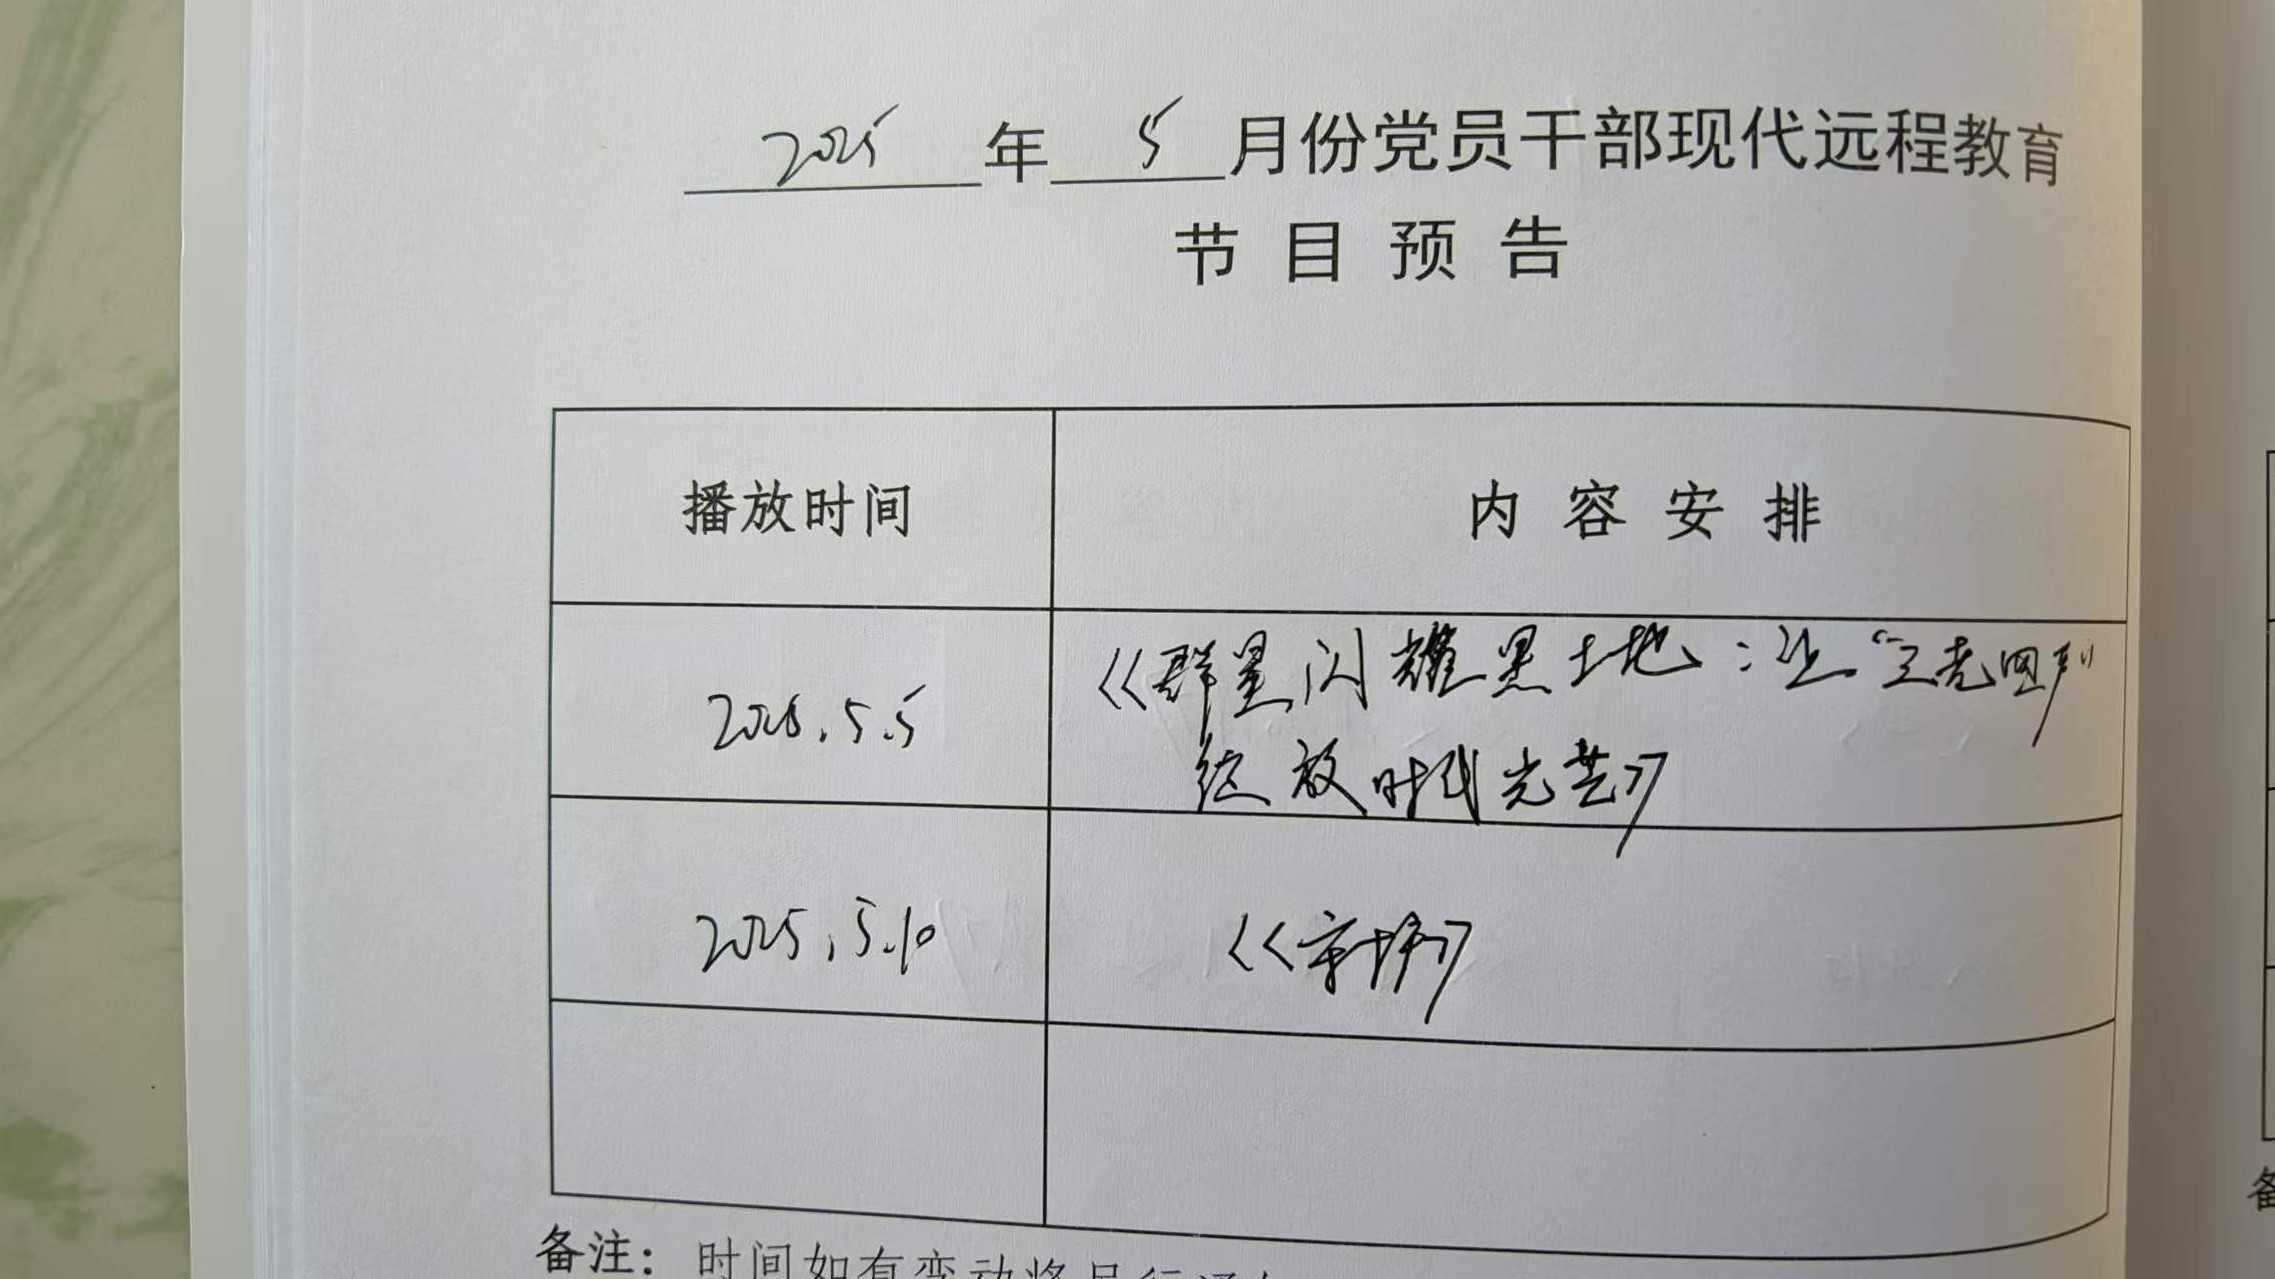 2025 年 5 月份党员干部现代远程教育
节目预告
播放时间 内容安排
2025.5.5 《群星闪耀黑土地:让“三老四严”
绽放时代光芒》
2025.5.10
备注:时间如有变动将另行通知
备